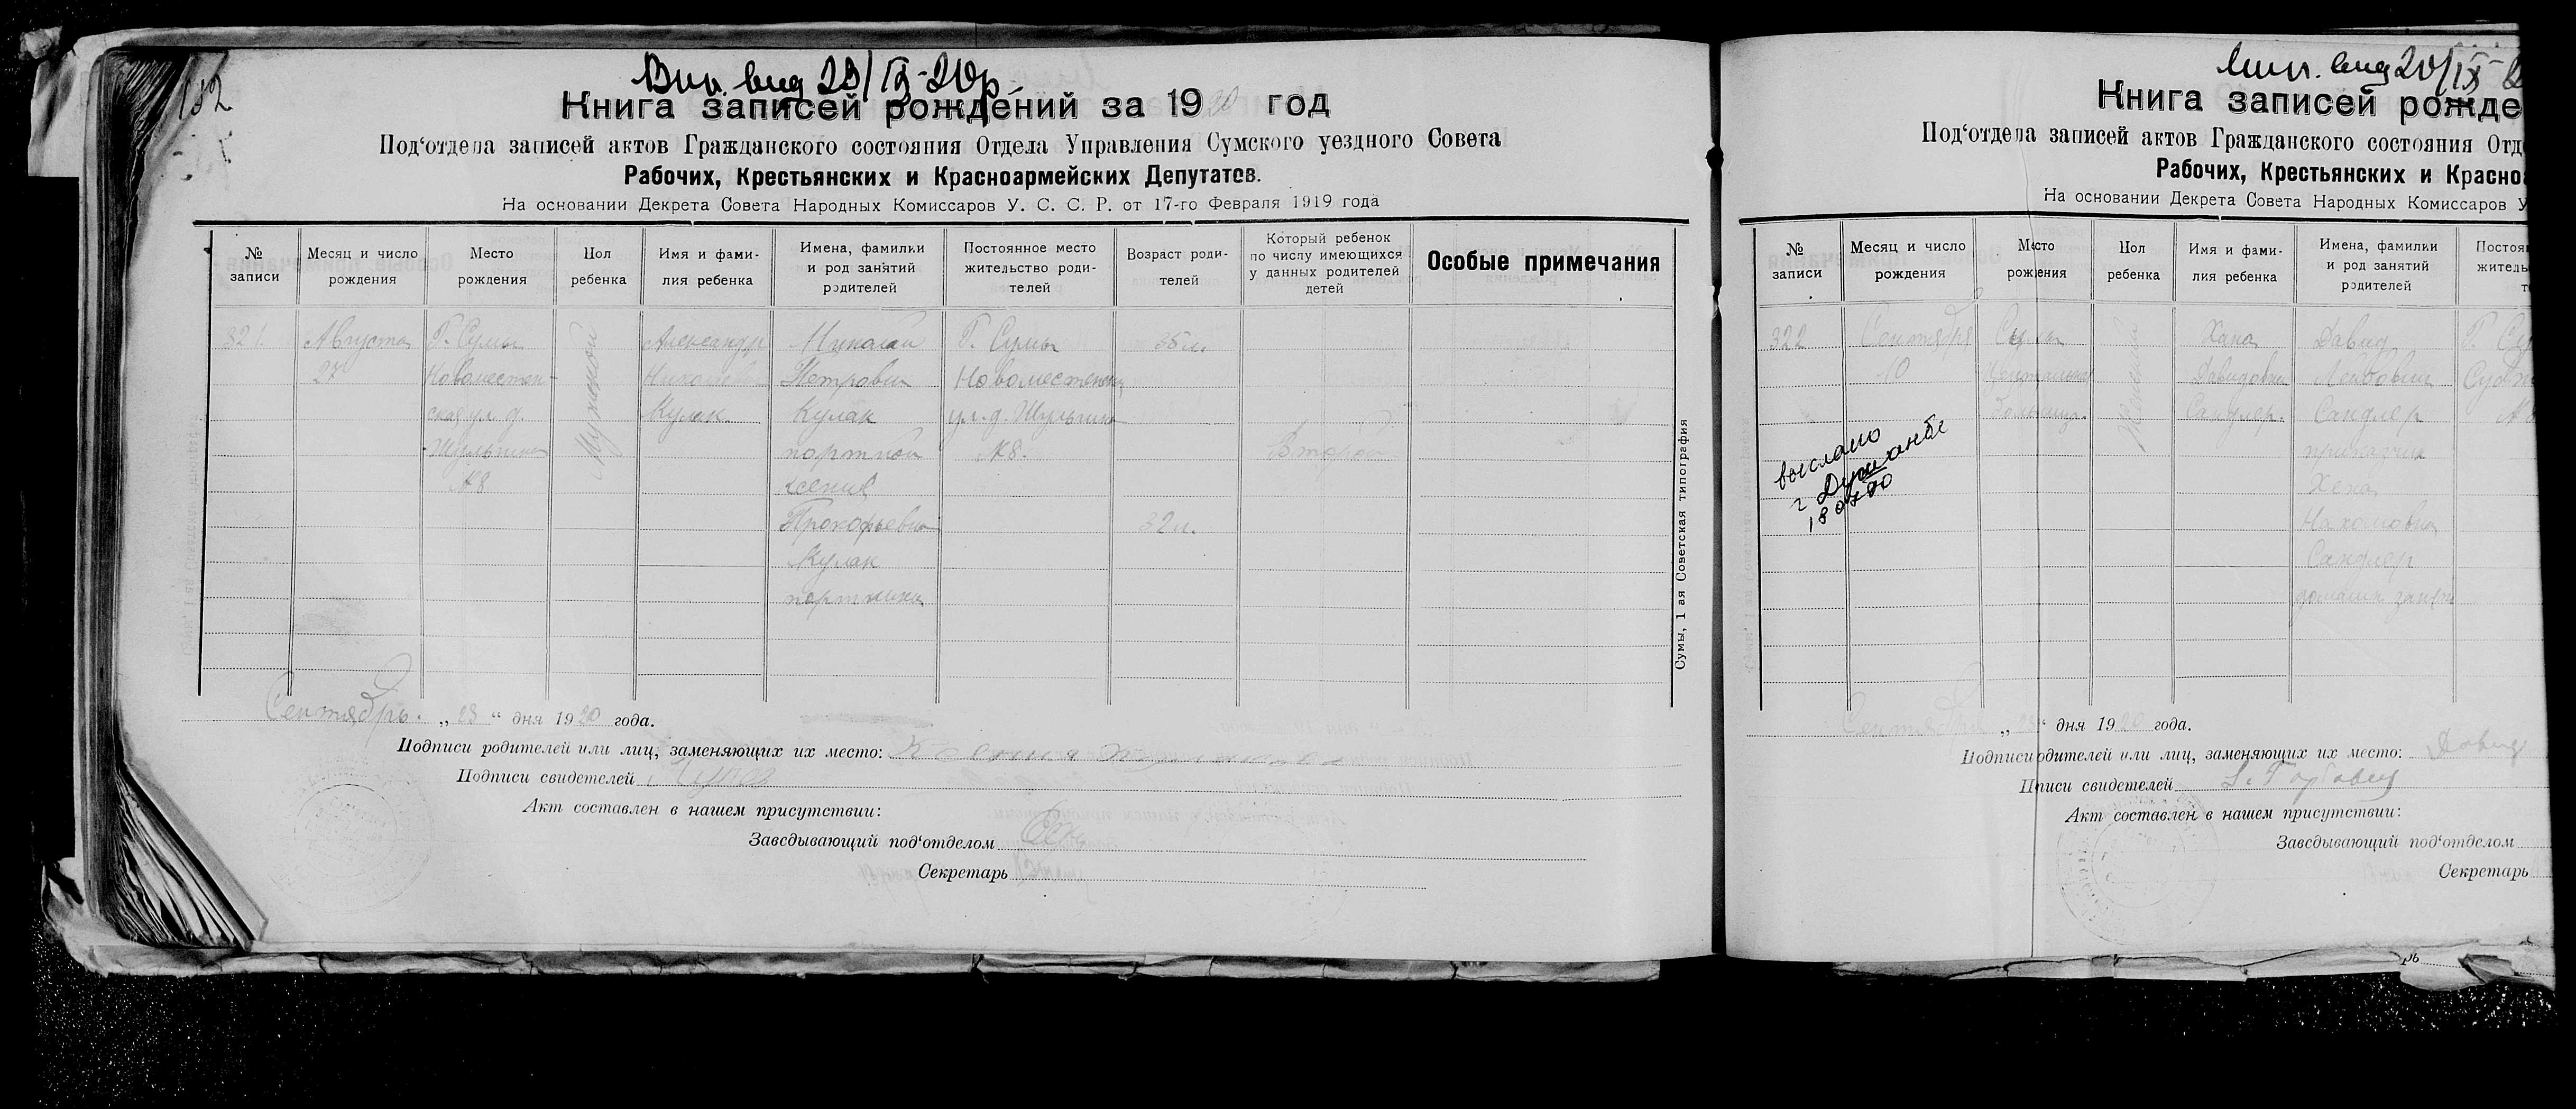 132
Вип. вид 23/IX-20р.
Книга записей рождений за 1920 год
Под‘отдела записей актов Гражданского состояния Отдела Управления Сумского уездного Совета
Рабочих, Крестьянских и Красноармейских Депутатов.
На основании Декрета Совета Народных Комиссаров У. С. С. Р. от 17-го Февраля 1919 года
№ записи
Месяц и число рождения
Место рождения
Пол ребенка
Имя и фамилия ребенка
Имена, фамилии и род занятий родителей
Постоянное место жительство родителей
Возраст родителей
Который ребенок по числу имеющихся у данных родителей детей
Особые примечания
321.
Августа
27
Г. Сумы
Новоместен-
ская ул. д.
Шульгина
№8
Мужской
Александр
Кулак
Николай
Петрович
Кулак
портной
Ксения
Прокофьевна
Кулак
портниха
Г. Сумы
Новоместенск.
ул. д. Шульгина
№8.
35 л.
32 л.
Второй
Сумы, 1 ая Советская типография
Сентябрь. „ 23 “ дня 1920 года.
Подписи родителей или лиц, заменяющих их место:
Подписи свидетелей
Акт составлен в нашем присутствии:
Заведывающий под‘отделом
Секретарь
вид 20/IX-
Книга записей рожде
Под‘отдела записей актов Гражданского состояния Отд
Рабочих, Крестьянских и Красно
На основании Декрета Совета Народных Комиссаров У
№ записи
Месяц и число рождения
Место рождения
Пол ребенка
Имя и фамилия ребенка
Имена, фамилии и род занятий родителей
Постоян
житель
322
Сентября
10
Сумы
Центральная
больница.
Женский
Хана
Давидовна
Сандлер.
Давид
Лейбович
Сандлер
приказчик
Хена
Сандлер
домашн. занят.
Г. Су
выслано
г Душанбе
180790
Сентября „ “ дня 1920 года.
Подписи родителей или лиц, заменяющих их место: Давид
Подписи свидетелей
Акт составлен в нашем присутствии:
Заведывающий под‘отделом
Секретарь